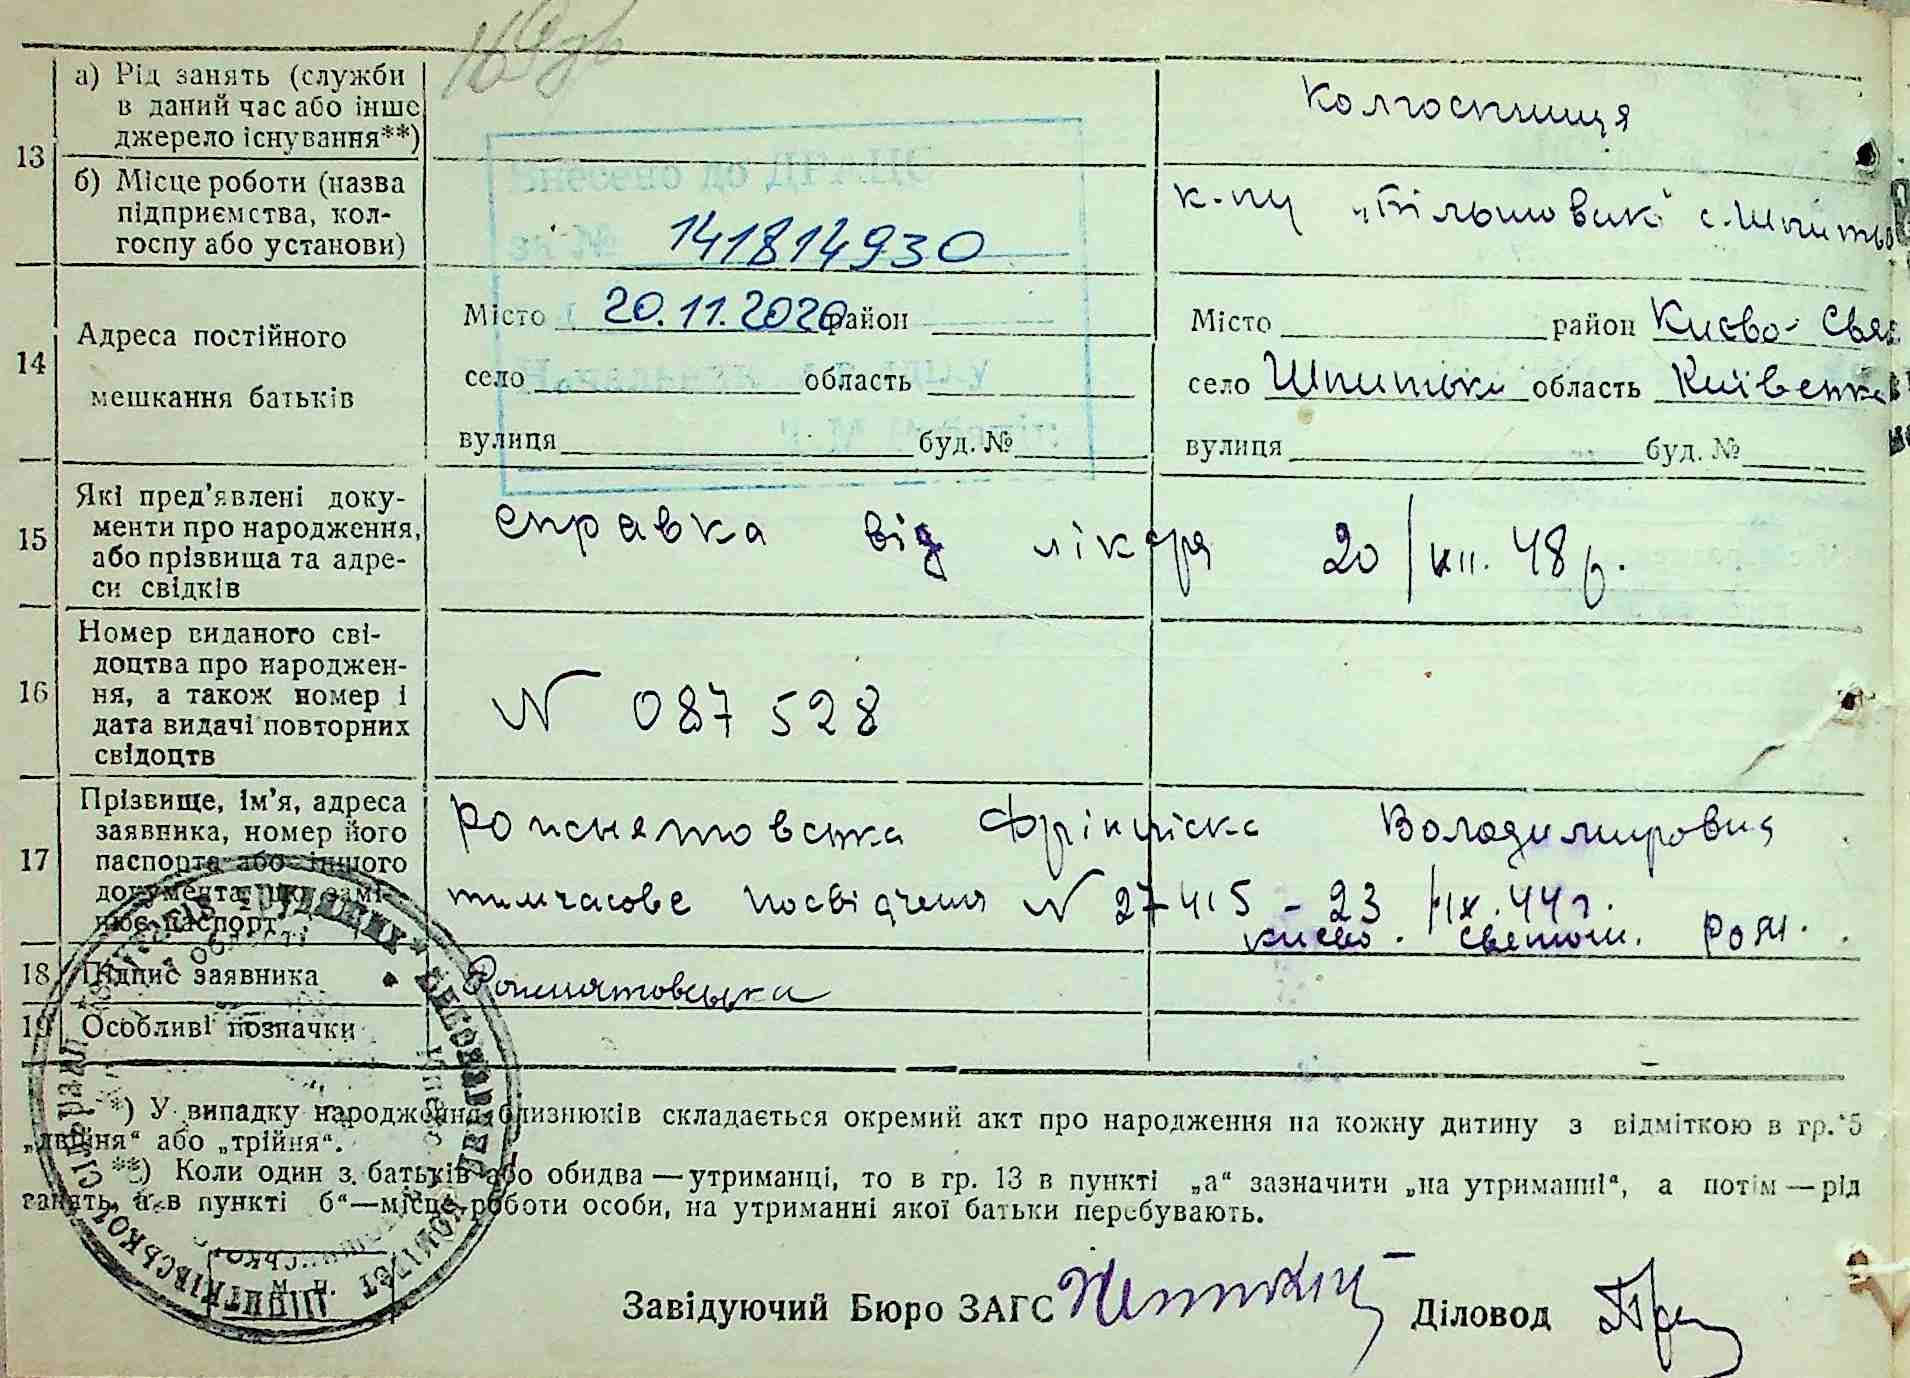 13
а) Рід занять (служби
в даний час або інше
джерело існування**)
колгоспниця
б) Місце роботи (назва
підприємства, кол-
госпу або установи)
к-пу „Більшовик" с. Шпитьк
Внесено до ДРАЦС
за № 141814930
20.11.2020
14
Адреса постійного
мешкання батьків
Місто район
село область
вулиця буд. №
Місто район Києво-Свят
село Шпитьки область Київська
вулиця буд. №
15
Які пред'явлені доку-
менти про народження,
або прізвища та адре-
си свідків
справка від лікаря 20/XII.48р.
16
Номер виданого сві-
доцтва про народжен-
ня, а також номер і
дата видачі повторних
свідоцтв
N 087528
17
Прізвище, ім'я, адреса
заявника, номер його
паспорта або іншого
документа, що замі-
нює паспорт
Володимировна
тимчасове посвідчення N 27415 - 23/IX.44г.
києво. святош. район.
18
Підпис заявника
19
Особливі позначки
*) У випадку народження близнюків складається окремий акт про народження на кожну дитину з відміткою в гр. 5
„двійня“ або „трійня“.
**) Коли один з батьків або обидва — утриманці, то в гр. 13 в пункті „а“ зазначити „на утриманні“, а потім — рід
занять, а в пункті б“ — місце роботи особи, на утриманні якої батьки перебувають.
М. П.
Завідуючий Бюро ЗАГС Діловод